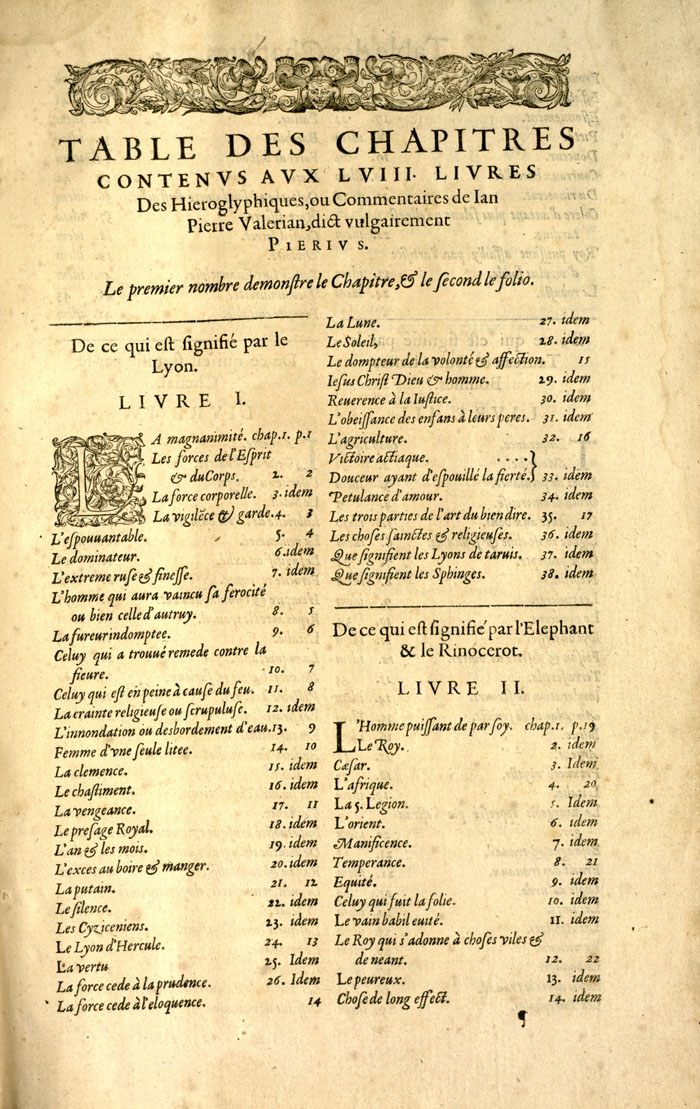 TABLE DES CHAPITRES
CONTENVS AVX LVIII. LIVRES
Des Hieroglyphiques, ou Commentaires de Ian
Pierre Valerian, dict vulgairement
PIERIVS.
Le premier nombre demonſtre le Chapitre, & le second le folio.
De ce qui est ſignifié par le
Lyon.
LIVRE I.
LA magnanimité. chap.1. p.1
Les forces de l'Eſprit
& du Corps. 2. 2
La force corporelle. 3. idem
La vigilẽce & garde. 4. 3
L'eſpouuantable. 5. 4
Le dominateur. 6. idem
L'extreme ruse & fineſſe. 7. idem
L'homme qui aura vaincu ſa ferocité
ou bien celle d'autruy. 8. 5
La fureur indomptee. 9. 6
Celuy qui a trouué remede contre la
fieure. 10. 7
Celuy qui est en peine à cauſe du feu. 11. 8
La crainte religieuſe ou ſcrupuluſe. 12. idem
L'innondation ou desbordement d'eau. 13. 9
Femme d'vne ſeule litee. 14. 10
La clemence. 15. idem
Le chaſtiment. 16. idem
La vengeance. 17. 11
Le preſage Royal. 18. idem
L'an & les mois. 19. idem
L'exces au boire & manger. 20. idem
La putain. 21. 12
Le ſilence. 22. idem
Les Cyziceniens. 23. idem
Le Lyon d'Hercule. 24. 13
La vertu 25. Idem
La force cede à la prudence. 26. Idem
La force cede à l'eloquence. 14
La Lune. 27. idem
Le Soleil, 28. idem
Le dompteur de la volonté & affection. 15
Ieſus Chriſt Dieu & homme. 29. idem
Reuerence à la Iuſtice. 30. idem
L'obeiſſance des enfans à leurs peres. 31. idem
L'agriculture. 32. 16
Victoire actiaque. ....}
Douceur ayant d'eſpouillé la fierté.} 33. idem
Petulance d'amour. 34. idem
Les trois parties de l'art du bien dire. 35. 17
Les choſes ſainctes & religieuſes. 36. idem
Que ſignifient les Lyons de taruis. 37. idem
Que ſignifient les Sphinges. 38. idem
De ce qui est ſignifié par l'Elephant
& le Rinocerot.
LIVRE II.
L'Homme puiſſant de par ſoy. chap.1. p.19
Le Roy. 2. idem
Cæſar. 3. Idem
L'afrique. 4. 20
La 5. Legion. 5. Idem
L'orient. 6. idem
Manificence. 7. idem
Temperance. 8. 21
Equité. 9. idem
Celuy qui fuit la folie. 10. idem
Le vain babil euité. 11. idem
Le Roy qui s'adonne à choſes viles &
de neant. 12. 22
Le peureux. 13. idem
Choſe de long effect. 14. idem
¶